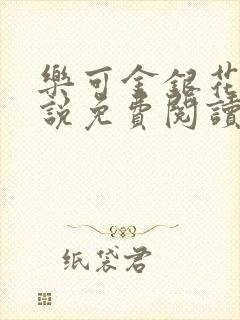 樂可金銀花
說免費閱讀
纸袋君